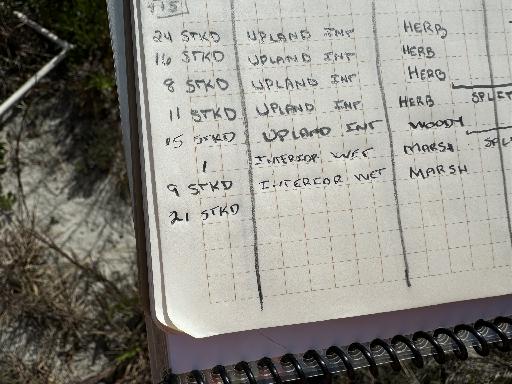 115
24 STKD UPLAND INT HERB
16 STKD UPLAND INT HERB
8 STKD UPLAND INT HERB
11 STKD UPLAND INT HERB SPLIT
15 STKD UPLAND INT WOODY
1 INTERIOR WET MARSH
9 STKD INTERIOR WET MARSH
21 STKD